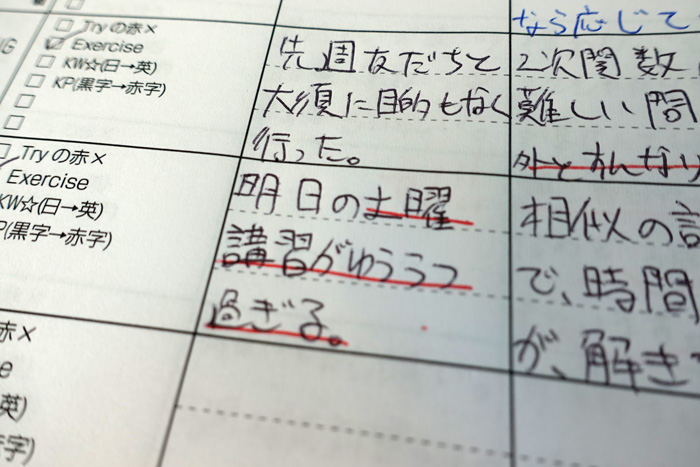 なら応じて
NG
□ Try の赤×
☑ Exercise
□ KW☆(日→英)
□ KP(黒字→赤字)
□
□
先週友だちと
大須に目的もなく
行った。
2次関数
難しい問
□ Try の赤×
Exercise
KW☆(日→英)
P(黒字→赤字)
明日の土曜
講習がゆううつ
過ぎる。
相似の
で、時間
が、解き
赤×
e
英)
字)